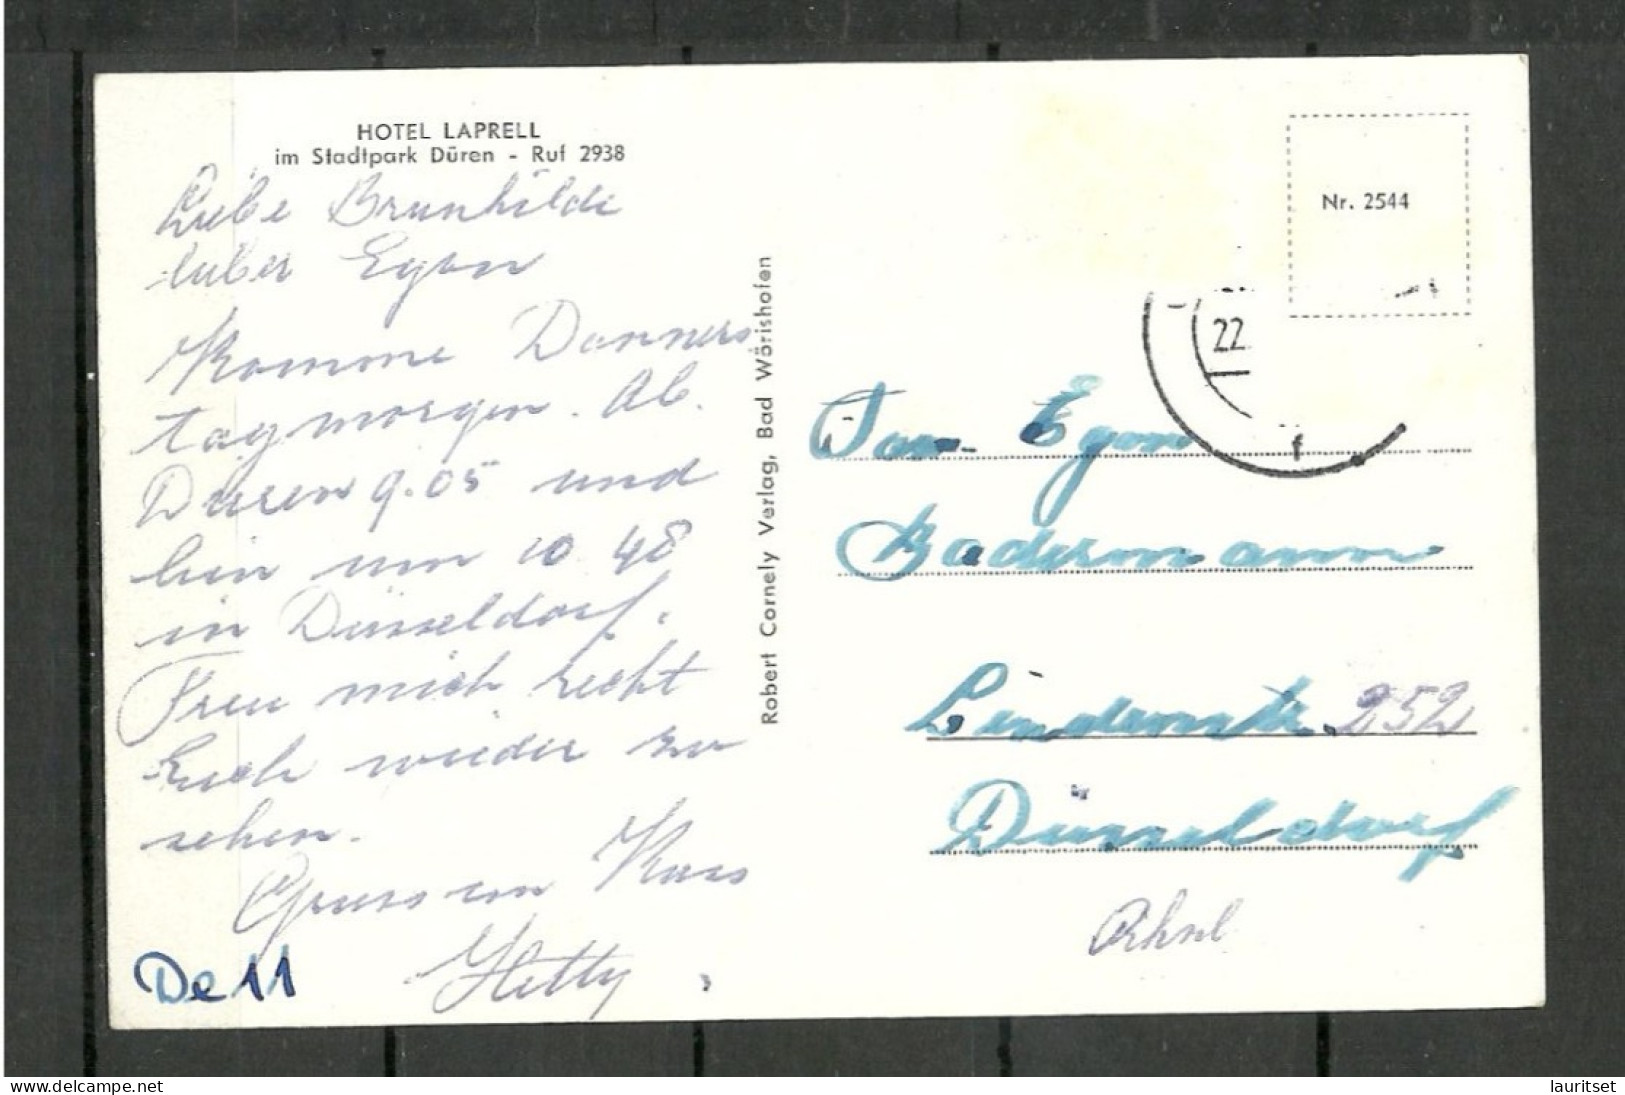 HOTEL LAPRELL
im Stadtpark Düren - Ruf 2938
Liebe Brunhilde
lieber Egon
Komme Donners
tagmorgen. Ab.
Düren 9.05 und
bin um 10 48
in Düsseldorf.
Freu mich recht
Euch wieder zu
sehen.
Gruss um Kuss
Hetty.
De 11
Robert Cornely Verlag, Bad Wörishofen
Nr. 2544
22
f
Fam. Egon
Badermann
Lindenstr. 252
Düsseldorf
Rhnl
delcampe.net
lauritset